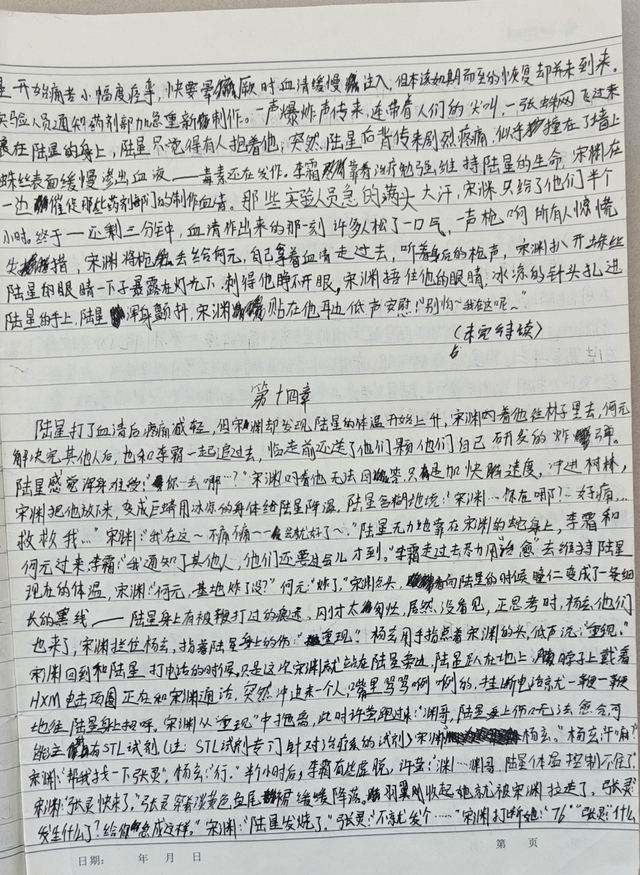 星开始痛苦小幅度痉挛，快要晕厥时血清缓慢注入，但本该如期而至的恢复却并未到来。
实验人员通知药剂部加急重新制作。一声爆炸声传来，连带着人们的尖叫，一张蛛网飞过来
裹在陆星的身上，陆星只觉得有人抱着他，突然，陆星后背传来剧烈疼痛，似乎撞在了墙上
蛛丝表面缓慢渗出血液——毒素还在发作。李霜靠着治疗勉强维持陆星的生命，宋渊在
一边催促那些药剂部门的制作血清，那些实验人员急的满头大汗，宋渊只给了他们半个
小时。终于——还剩三分钟，血清作出来的那一刻许多人松了一口气，一声枪响所有人惊慌
失措，宋渊将枪丢去给何元，自己拿着血清走过去，听着身后的枪声，宋渊扒开蛛丝
陆星的眼睛一下子暴露在灯光下，刺得他睁不开眼，宋渊捂住他的眼睛，冰凉的针头扎进
陆星的手上，陆星浑身颤抖，宋渊贴在他耳边低声安慰：“别怕~我在这呢~”
（未完待续）
第十四章
陆星打了血清后疼痛减轻，但宋渊却发现陆星的体温开始上升，宋渊抱着他往林子里去，何元
解决完其他人后，也和李霜一起追过去，临走前还送了他们颗他们自己研发的炸弹。
陆星感觉浑身难受：“你去哪…？”宋渊叼着他无法回答，只是加快速度，冲进树林，
宋渊把他放下来，变成巨蟒用冰凉的身体给陆星降温，陆星含糊地说：“宋渊…你在哪？…好痛…
救救我…”宋渊：“我在这~不痛痛~一会就好了~。”陆星无力地靠在宋渊的蛇身上，李霜和
何元过来李霜：“我通知了其他人，他们还要过会儿才到。”李霜走过去尽力用“治愈”去维持陆星
现在的体温，宋渊：“何元，基地炸了没？”何元：“炸了。”宋渊点头，看向陆星的时候瞳仁变成了一条细
长的黑线——陆星身上有被鞭打过的痕迹，刚才太匆忙，居然没看见，正思考时，杨玄他们
也来了，宋渊拦住杨玄，指着陆星身上的伤：“重现。”杨玄用手指点着宋渊的头，低声说：“重现。”
宋渊回到和陆星打电话的时候，只是这次宋渊就站在陆星旁边，陆星趴在地上，脖子上戴着
HXM电击项圈正在和宋渊通话，突然冲进来一个人，嘴里骂骂咧咧的，挂断电话就一鞭一鞭
地往陆星身上抽呀。宋渊从“重现”中抽离，此时许萤跑过来：“渊哥，陆星身上伤口无法愈合，可
能主有STL试剂（注：STL试剂专门针对治疗系的试剂）宋渊：杨玄。”杨玄：“干嘛？”
宋渊：“帮我找一下张灵。”杨玄：“行。”半个小时后，李霜有些虚脱，许萤：“渊…渊哥，陆星体温控制不住了。”
宋渊：“张灵快来了。”张灵穿着淡黄色鱼尾裙缓缓降落，羽翼刚收起她就被宋渊拉走了，张灵：
发生什么了？给你急成这样。”宋渊：“陆星发烧了。”张灵：“不就发个……”宋渊打断她：“76°”张灵：“什么
日期：　年　月　日　　第　页